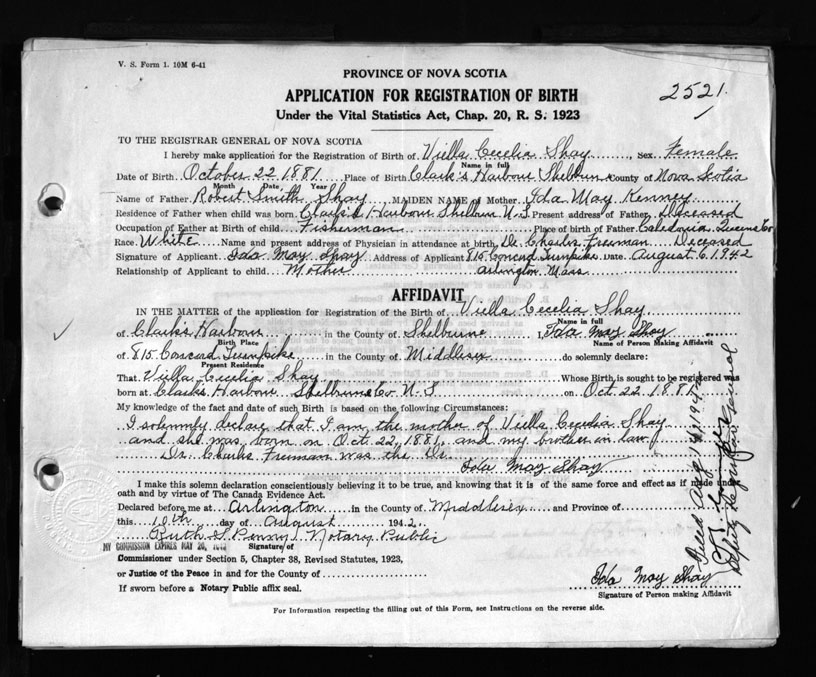 V. S. Form 1. 10M 6-41
PROVINCE OF NOVA SCOTIA
2521
APPLICATION FOR REGISTRATION OF BIRTH
Under the Vital Statistics Act, Chap. 20, R. S. 1923
TO THE REGISTRAR GENERAL OF NOVA SCOTIA
I hereby make application for the Registration of Birth of Viella Cecelia Shay, Sex Female
Name in full
Date of Birth October 22 1881 Place of Birth Clark's Harbour Shelburne County of Nova Scotia
Month Date Year
Name of Father Robert Smith Shay MAIDEN NAME of Mother Ida May Kenney
Residence of Father when child was born Clark's Harbour Shelburn N.S. Present address of Father Deceased
Occupation of Father at Birth of child Fisherman Place of birth of Father Caledonia Queens Co
Race White Name and present address of Physician in attendance at birth Dr. Charles Freeman Deceased
Signature of Applicant Ida May Shay Address of Applicant 815 Concord Turnpike Date August 6, 1942
Relationship of Applicant to child Mother Arlington Mass
AFFIDAVIT
IN THE MATTER of the application for Registration of the Birth of Viella Cecelia Shay
Name in full
of Clark's Harbour in the County of Shelburne I, Ida May Shay
Birth Place Name of Person Making Affidavit
of 815 Concord Turnpike in the County of Middlesex do solemnly declare:
Present Residence
That Viella Cecelia Shay Whose Birth is sought to be registered was
born at Clark's Harbour Shelburne Co N.S on Oct 22 1881
My knowledge of the fact and date of such Birth is based on the following Circumstances:
I solemnly declare that I am the mother of Viella Cecelia Shay
and she was born on Oct 22, 1881, and my brother in law
Dr. Charles Freeman was the Dr.
Ida May Shay
I make this solemn declaration conscientiously believing it to be true, and knowing that it is of the same force and effect as if made under
oath and by virtue of The Canada Evidence Act.
Declared before me at Arlington in the County of Middlesex and Province of
this 10th day of August 1942
Ruth S. Penny Notary Public
MY COMMISSION EXPIRES MAY
Signature of
Commissioner under Section 5, Chapter 38, Revised Statutes, 1923,
or Justice of the Peace in and for the County of
Ida May Shay
If sworn before a Notary Public affix seal.
Signature of Person making Affidavit
For Information respecting the filling out of this Form, see Instructions on the reverse side.
Filed Aug 14 1942
Deputy Registrar General